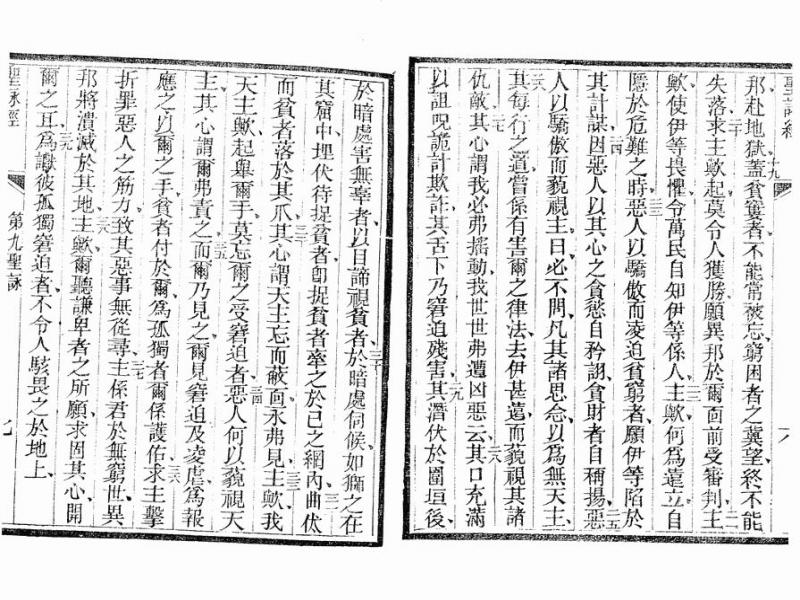 聖詠經
八
邦赴地獄蓋貧窶者不能常被忘窮困者之冀望終不能
十九
失落求主歟起莫令人獲勝願異邦於爾面前受審判主
二十
二一
歟使伊等畏懼令萬民自知伊等係人主歟何為遠立自
隱於危難之時惡人以驕傲而凌迫貧窮者願伊等陷於
其計謀因惡人以其心之貪慾自矜詡貧財者自稱揚惡
二四
二五
人以驕傲而藐視主曰必不問凡其諸思念以為無天主
其每行之道當係有害爾之律法去伊甚遠而藐視其諸
仇敵其心謂我必弗搖動我世世弗遭凶惡云其口充滿
以詛呪詭計欺詐其舌下乃窘迫殘害其潛伏於圍垣後
二九
於暗處害無辜者以目諦視貧者於暗處伺候如獅之在
三十
其窟中埋伏待捉貧者卽捉貧者牽之於己之網內曲伏
三一
而貧者落於其爪其心謂天主忘而蔽面永弗見主歟我
天主歟起舉爾手莫忘爾之受窘迫者惡人何以藐視天
三四
主其心謂爾弗責之而爾乃見之爾見窘迫及凌虐為報
三五
應之以爾之手貧者付於爾為孤獨者爾係護佑求主擊
三六
折罪惡人之筋力致其惡事無從尋主係君於無窮世異
三七
邦將潰滅於其地主歟爾聽謙卑者之所願求固其心開
三八
爾之耳為讞彼孤獨窘迫者不令人駭畏之於地上
三九
聖詠經
第九聖詠
九